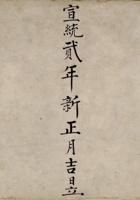 宣統貳年新正月吉日立